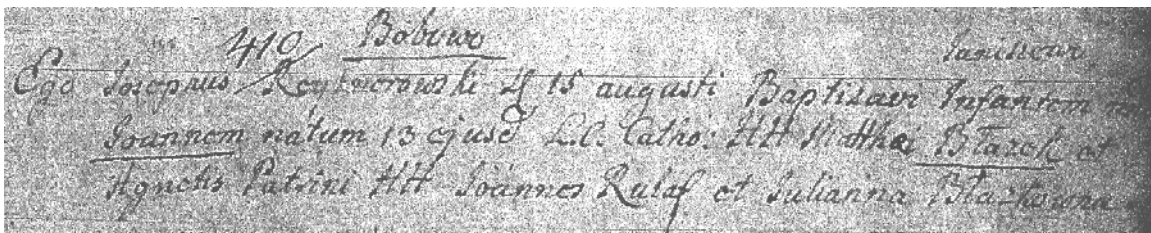 410 Bobowo
Ego Josephus 15 augusti Baptisavi Infantem
Joannem natum 13 ejusd L.C. Catho: HH Matthæi Błazek et
Agnetis Patrini HH Joannes Rulaf et Julianna Błazkowna